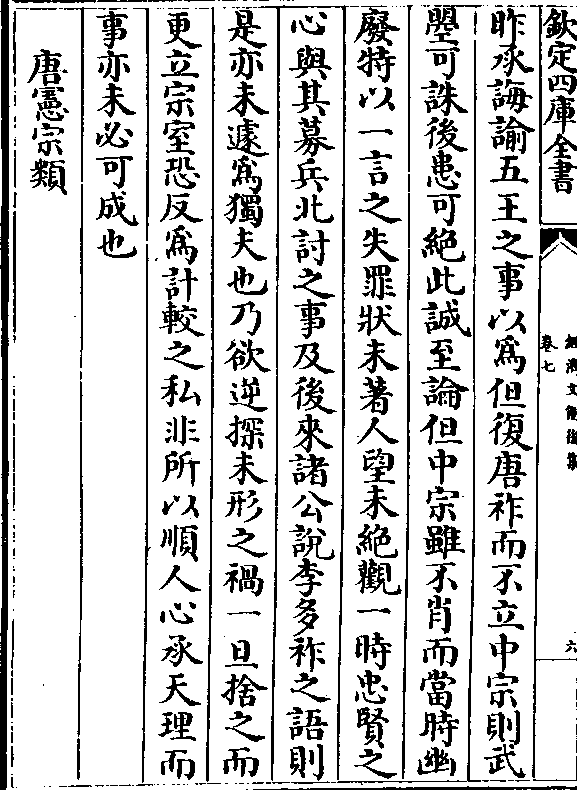 欽定四庫全書
卷七
六
昨承誨諭五王之事以爲但復唐祚而不立中宗則武
曌可誅後患可絕此誠至論但中宗雖不肖而當時幽
廢特以一言之失罪狀未著人望未絕觀一時忠賢之
心與其募兵北討之事及後來諸公說李多祚之語則
是亦未遽爲獨夫也乃欲逆探未形之禍一旦捨之而
更立宗室恐反爲計較之私非所以順人心承天理而
事亦未必可成也
唐憲宗類